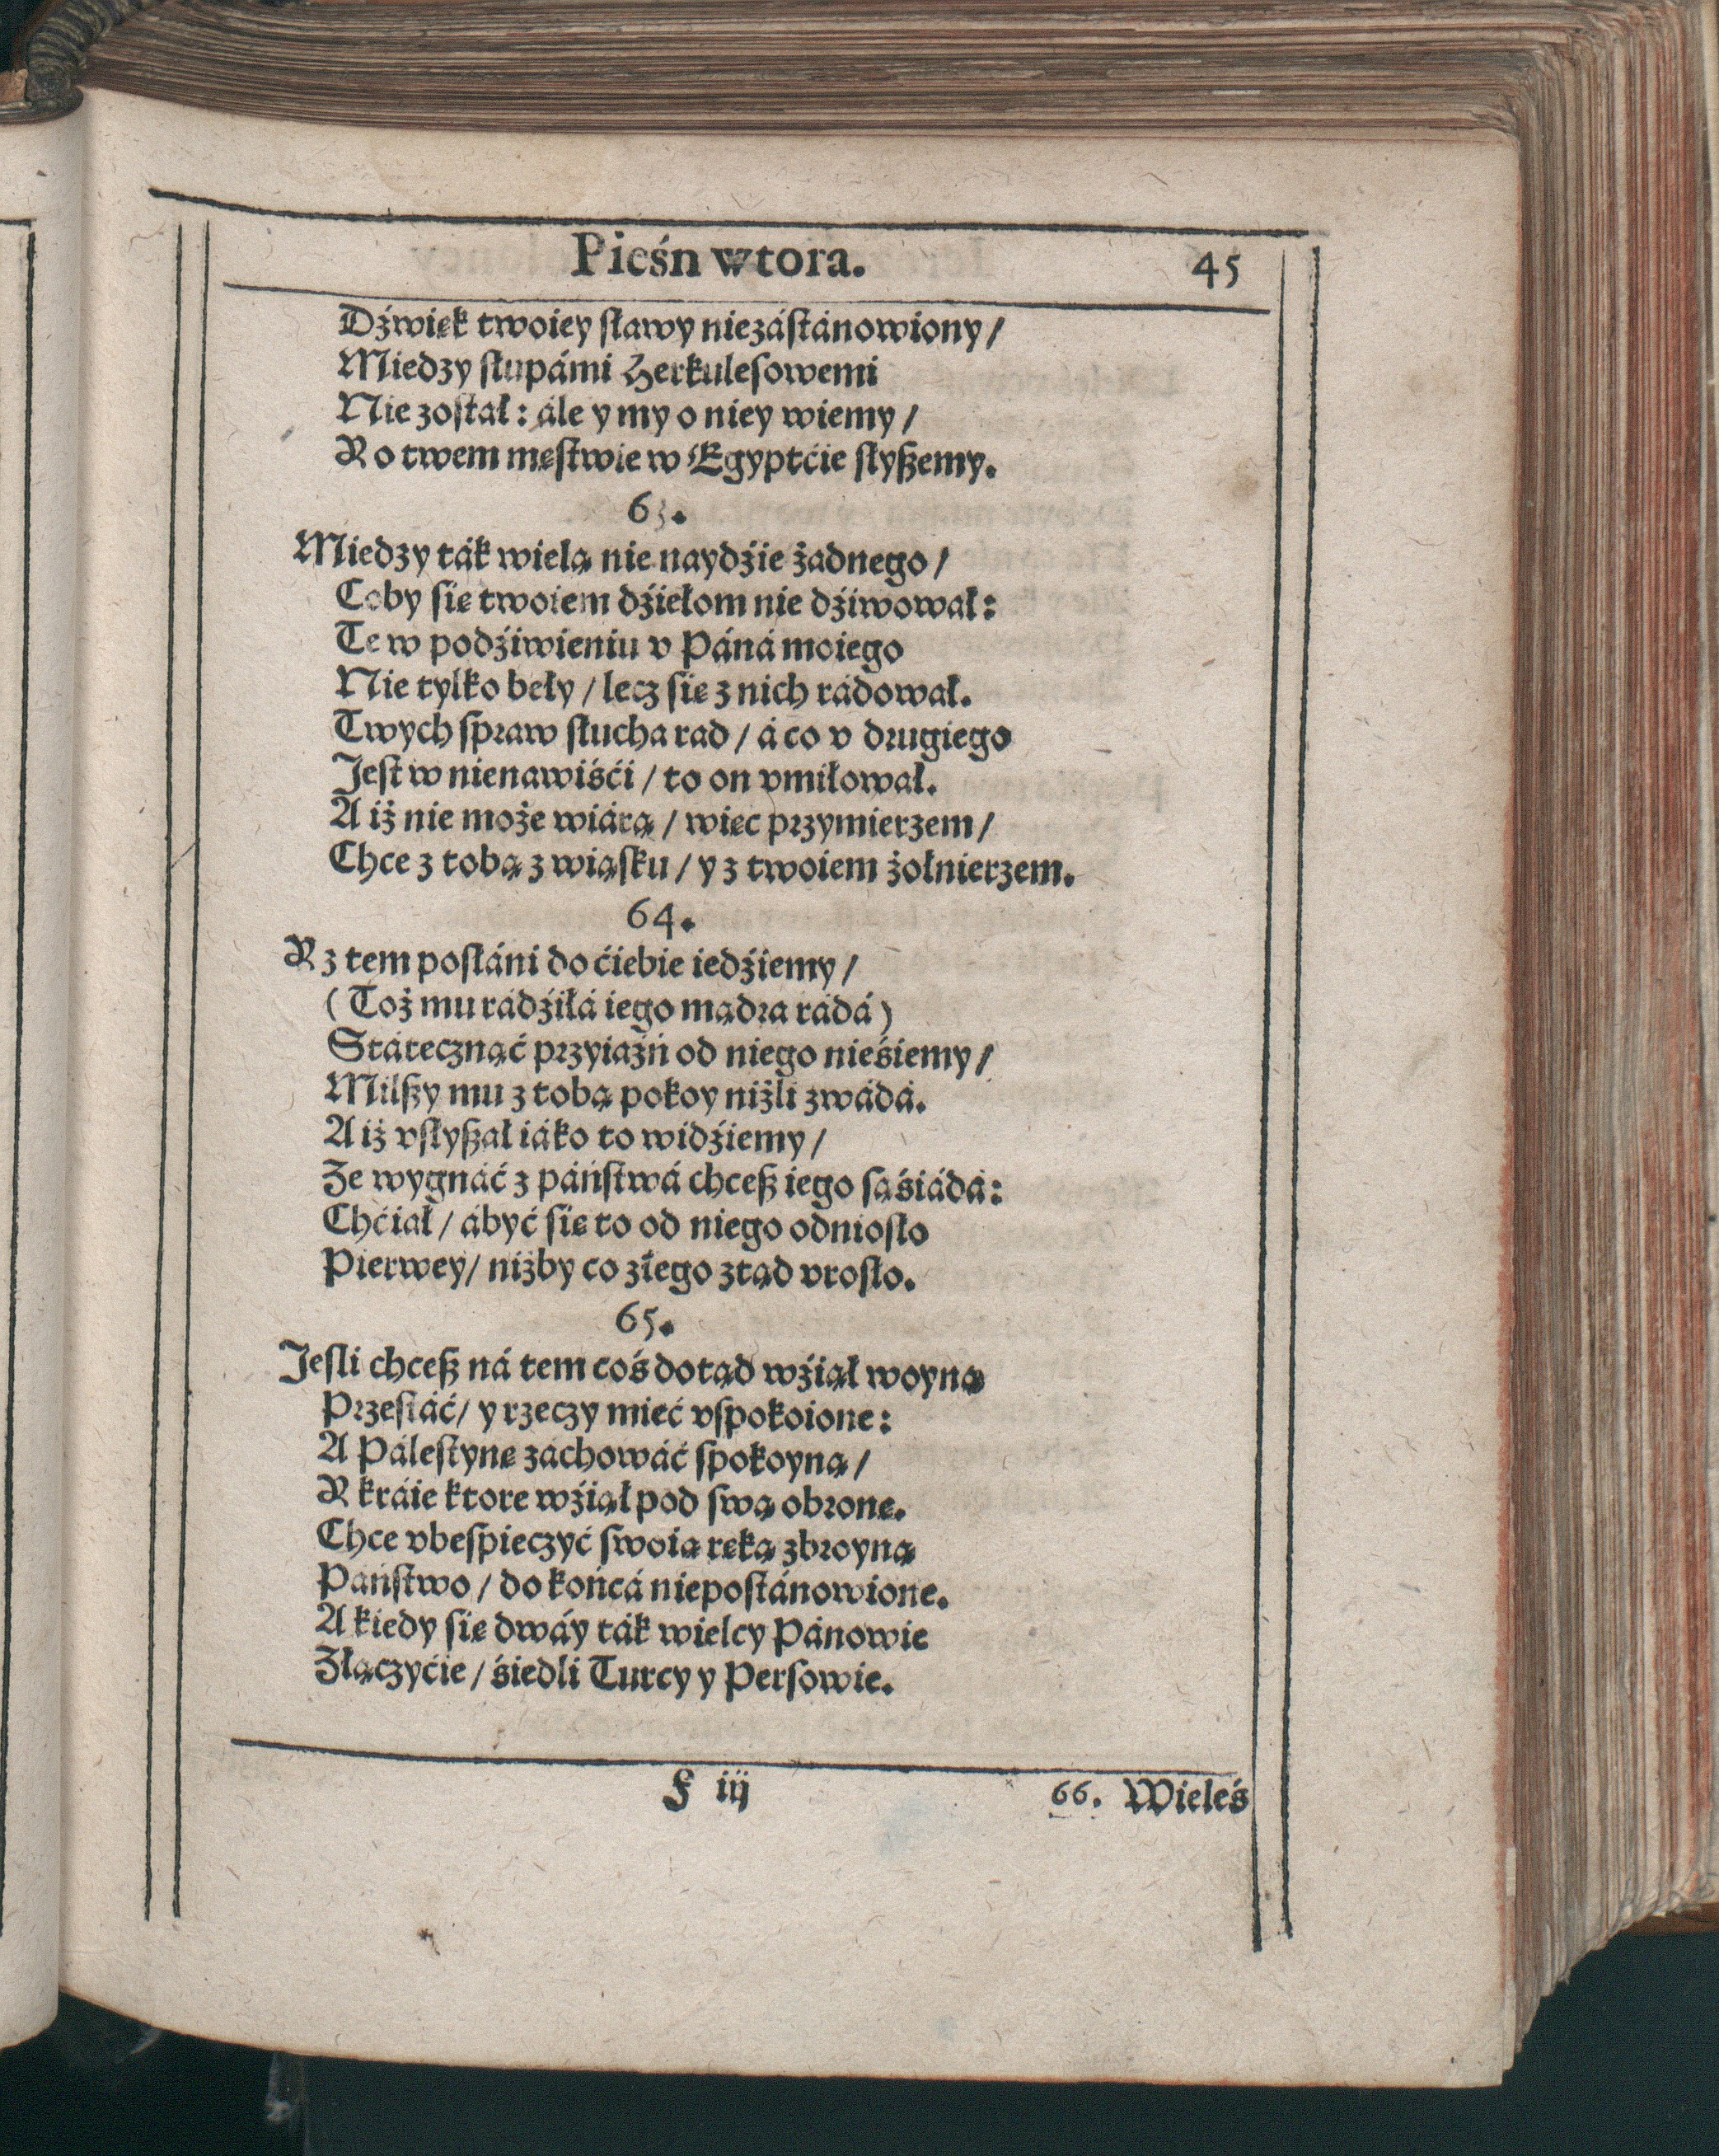 Pieśn wtora. 45
Dźwięk twoiey sławy niezástánowiony /
Miedzy słupámi Herkulesowemi
Nie został : ále y my o niey wiemy /
Y o twem męstwie w Egyptćie słyszemy.
63.
Miedzy ták wielą nie naydźie żadnego /
Coby się twoiem dźiełom nie dźiwował :
Te w podźiwieniu v Páná moiego
Nie tylko beły / lecz się z nich rádował.
Twych spraw słucha rad / á co v drugiego
Jest w nienawiśći / to on vmiłował.
A iż nie może wiárą / więc przymierzem /
Chce z tobą związku / y z twoiem żołnierzem.
64.
Y z tem posłáni do ćiebie iedźiemy /
( Toż mu rádźiłá iego mądra rádá )
Státecznąć przyiaźń od niego nieśiemy /
Milszy mu z tobą pokoy niżli zwádá.
A iż vsłyszał iáko to widźiemy /
Że wygnáć z páństwá chcesz iego sąśiádá :
Chćiał / ábyć się to od niego odniosło
Pierwey / niżby co złego ztąd vrosło.
65.
Jesli chcesz ná tem coś dotąd wźiął woyną
Przestáć / y rzeczy mieć vspokoione :
A Pálestynę záchowáć spokoyną /
Y kráie ktore wźiął pod swą obronę.
Chce vbespieczyć swoią ręką zbroyną
Páństwo / do końcá niepostánowione.
A kiedy się dwáy ták wielcy Pánowie
Złączyćie / śiedli Turcy y Persowie.
F iij 66. Wieleś